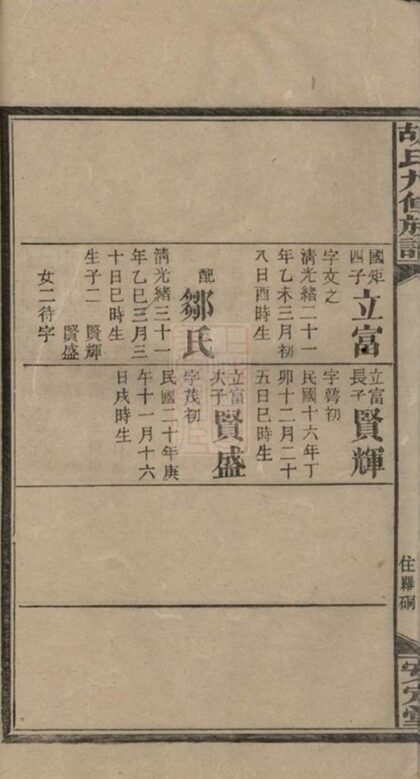 胡氏九修族譜
國矩
四子
立富
字文之
清光緒二十一
年乙未三月初
八日酉時生
配
鄒氏
清光緒三十一
年乙巳三月三
十日巳時生
生子二 賢輝
賢盛
女二待字
立富
長子
賢輝
字鶴初
民國十六年丁
卯十二月二十
五日巳時生
立富
次子
賢盛
字茂初
民國二十年庚
午十一月十六
日戌時生
住羅硐
安定堂